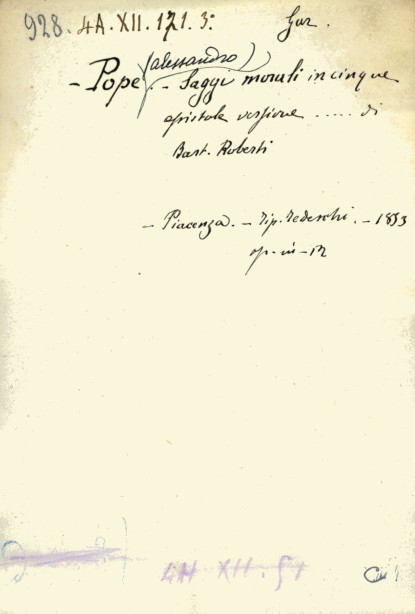 928. 4A. XII. 171. 3.
Gar.
- Pope (alessandro) - Saggi morali in cinque
epistole versione ..... di
Bart. Roberti
- Piacenza. - Tip. Tedeschi. - 1833
op. in - 12
4H XII. 51